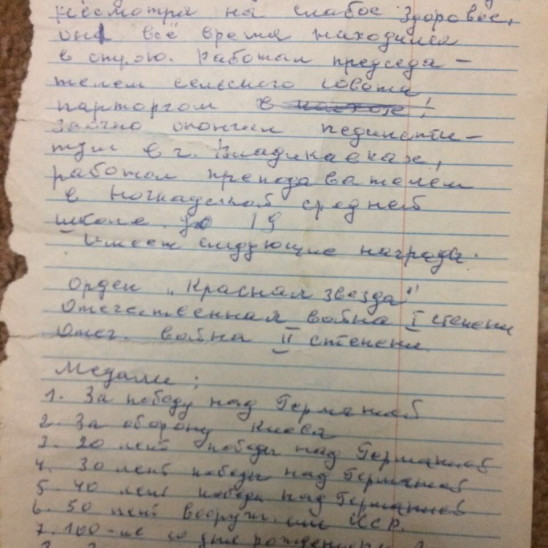 несмотря на слабое здоровье,
он всё время находился
в строю. Работал председа-
телем сельского совета
парторгом в колхозе;
заочно окончил пединсти-
тут в г. Владикавказ,
работал преподавателем
в Ногкауской средней
школе до 19
Имеет следующие награды.
Орден „Красная звезда"
Отечественная война I степени
Отеч. война II степени
Медали:
1. За победу над Германией
2. За оборону Киева
3. 20 лет победы над Германией
4. 30 лет победы над Германией
5. 40 лет победы над Германией
6. 50 лет вооруж. сил СССР
7. 100-ие со дня рождения